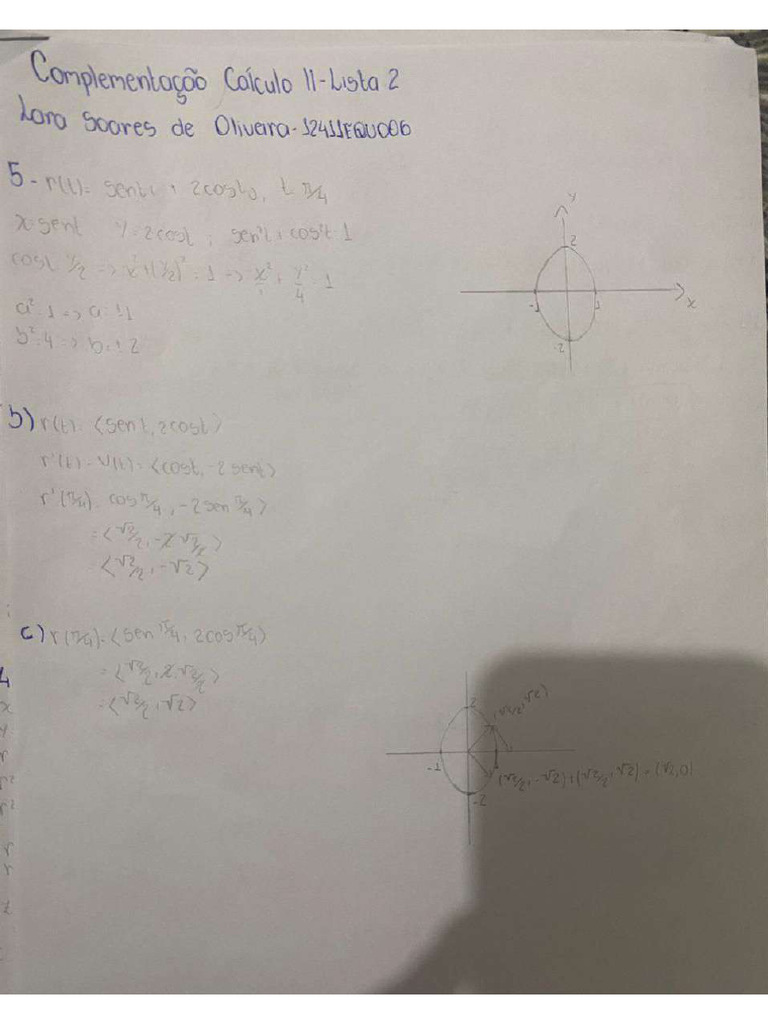 Complementação Cálculo II-Lista 2
Lara Soares de Oliveira-12411EQU006
5- r(t)= senti + 2costj, t π/4
x=sent y=2cost ; sen²t+cos²t=1
cost y/2 => x²+(y/2)²=1 => x²/1 + y²/4 = 1
a²=1 => a=±1
b²=4 => b=±2
y
2
-1
1
x
-2
b) r(t)= <sent, 2cost>
r'(t)=v(t)= <cost, -2sent>
r'(π/4)= cos π/4, -2sen π/4>
= <√2/2, -2√2/2>
= <√2/2, -√2>
c) r(π/4)= <sen π/4, 2cos π/4>
= <√2/2, 2√2/2>
= <√2/2, √2>
2
-1
-2
(√2/2, -√2)+(√2/2, √2) = (√2,0)